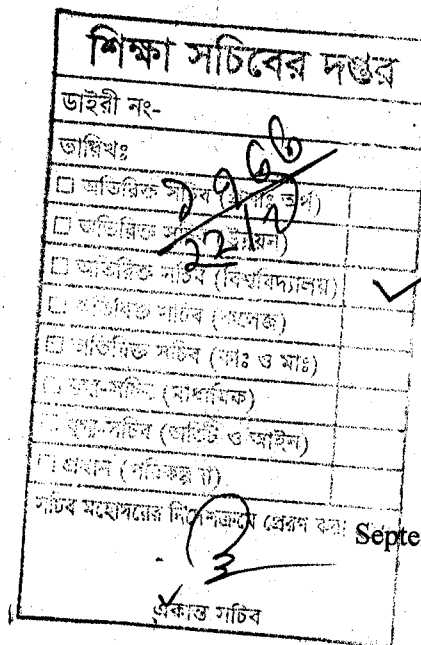 শিক্ষা সচিবের দপ্তর
ডাইরী নং-
তারিখঃ
অতিরিক্ত সচিব
অতিরিক্ত সচিব (উন্নয়ন)
অতিরিক্ত সচিব (বিশ্ববিদ্যালয়)
অতিরিক্ত সচিব (কলেজ)
অতিরিক্ত সচিব (কাঃ ও মাঃ)
যুগ্ম-সচিব (মাধ্যমিক)
যুগ্ম-সচিব (অডিট ও আইন)
প্রধান (পরিকল্পনা)
সচিব মহোদয়ের নির্দেশক্রমে প্রেরণ করা
Septe
একান্ত সচিব